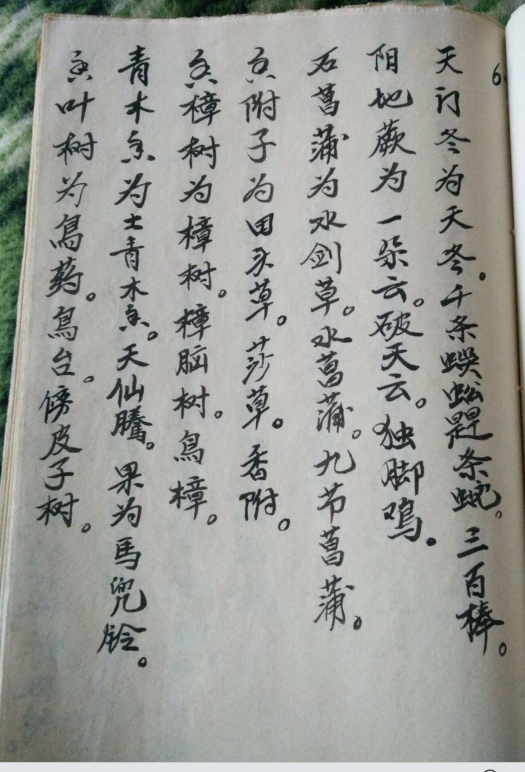 6
天门冬为天冬。千条蜈蚣赶条蛇。三百棒。
阳地蕨为一朵云。破天云。独脚鸡。
石菖蒲为水剑草。水菖蒲。九节菖蒲。
香附子为田头草。莎草。香附。
香樟树为樟树。樟脑树。乌樟。
青木香为土青木香。天仙腾。果为马兜铃。
香叶树为乌药。乌台。傍皮子树。